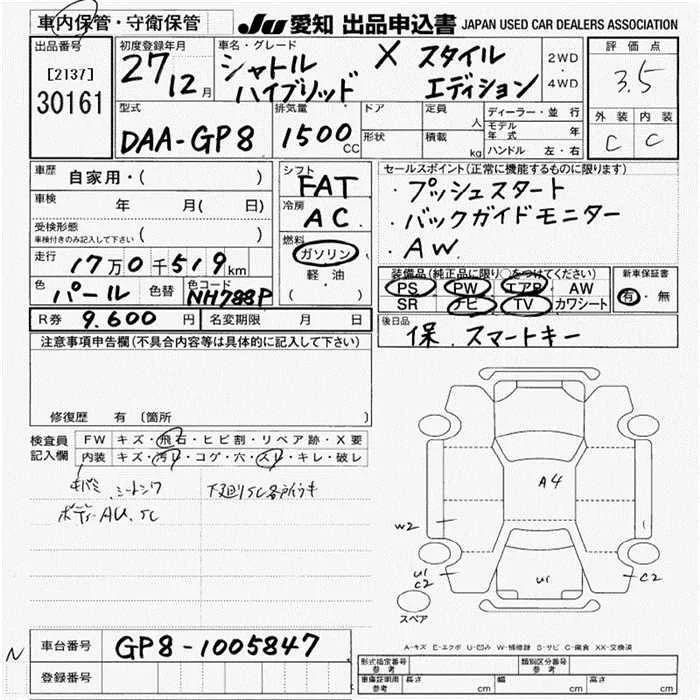 車内保管・守衛保管
JU 愛知 出品申込書 JAPAN USED CAR DEALERS ASSOCIATION
出品番号
[2137]
30161
初度登録年月
27 12月
車名・グレード
シャトル X スタイル
ハイブリッド エディション
2WD
・
4WD
評価点
3.5
外装 内装
C C
型式
DAA-GP8
排気量
1500 CC
ドア
形状
定員 人
積載 kg
ディーラー・並行
モデル年式 年
ハンドル 左・右
車歴 自家用・( )
車検 年 月( 日)
受検形態
車検付きのみ記入して下さい ( )
走行 17万0千519km
色 パール 色替 色コード NH788P
シフト
FAT
冷房
AC
燃料
ガソリン
軽油
( )
セールスポイント(正常に機能するものに限り)
・プッシュスタート
・バックガイドモニター
・AW
装備品(純正品に限り○をつけてください)
PS PW エアB AW
SR ナビ TV カワシート
新車保証書
有・無
R券 9.600 円 名変期限 月 日
後日品
保.スマートキー
注意事項申告欄(不具合内容等は具体的に記入して下さい)
修復歴 有 〔箇所 〕
検査員
記入欄
FW キズ・飛石・ヒビ割・リペア跡・X要
内装 キズ・汚レ・コゲ・穴・スレ・キレ・破レ
ボディーAU.SC
A4
W2
U1
C2
U1
C2
スペア
A-キズ E-エクボ U-凹み W-補修跡 S-サビ C-腐食 XX-交換済
N
車台番号 GP8-1005847
登録番号
形式指定番号
参考
類別区分番号
参考
車庫証明用
参考
長さ cm 幅 cm 高さ cm